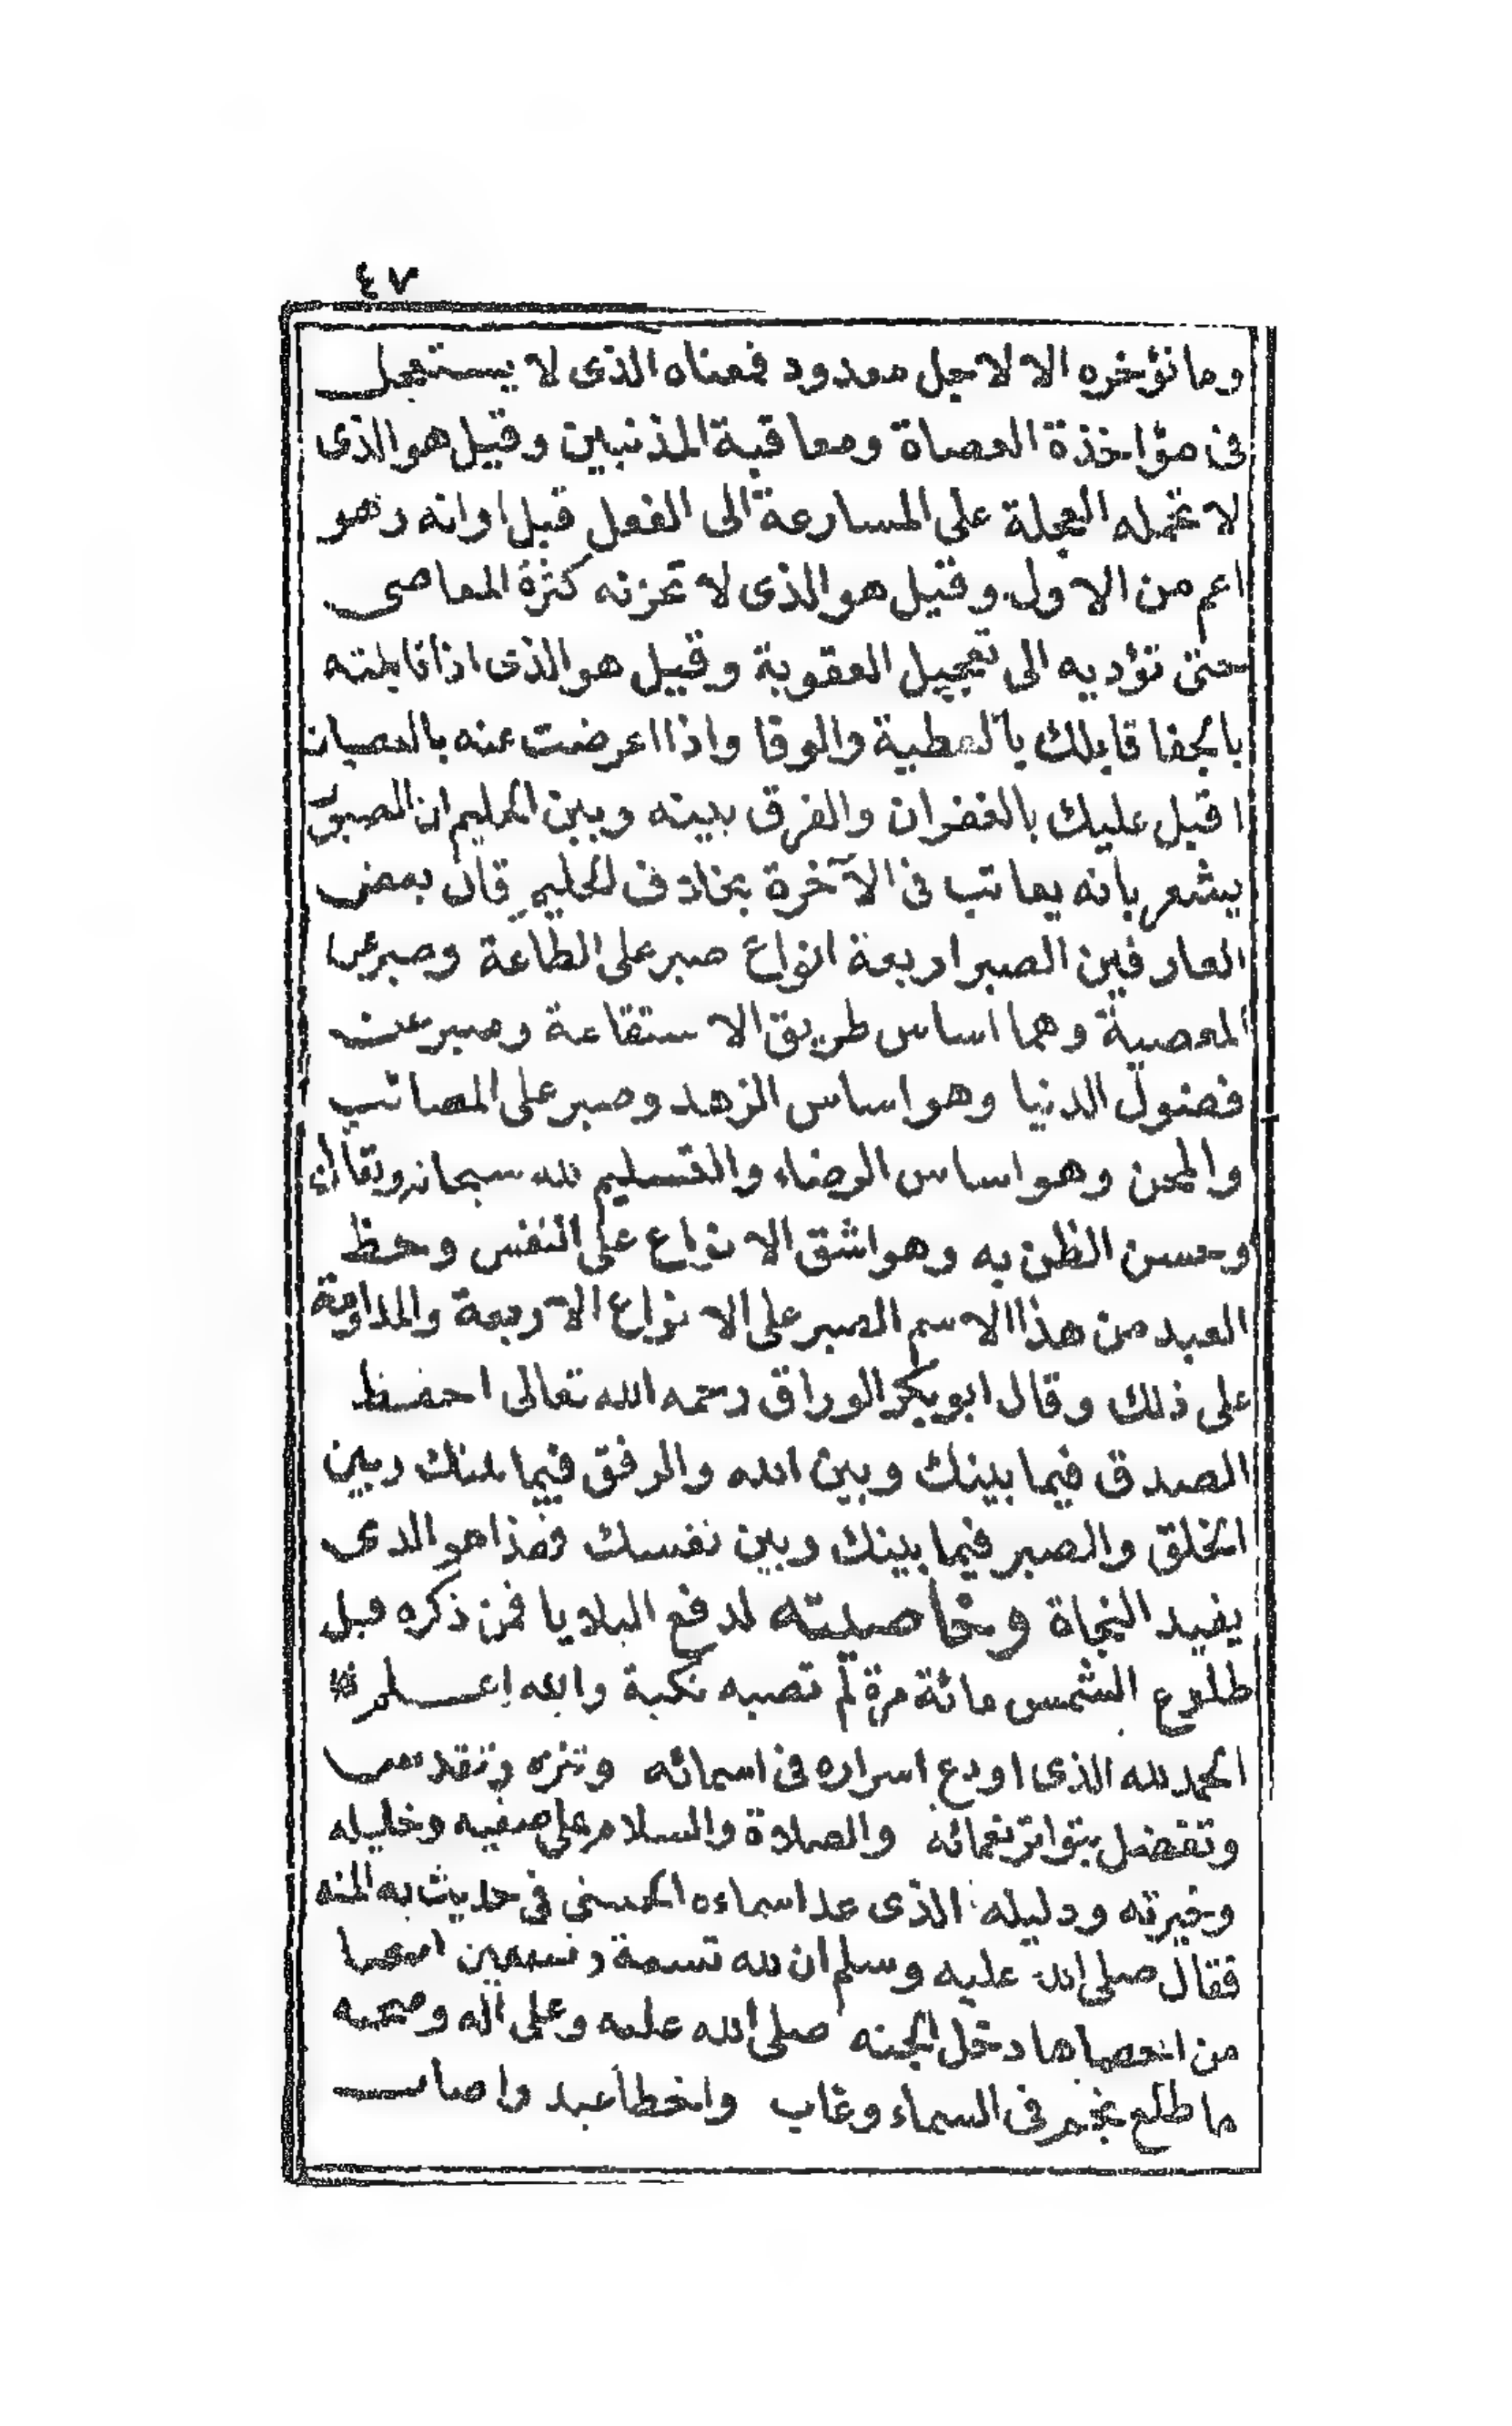 ٤٧
وما نؤخره الا لاجل معدود فمعناه الذى لا يستعجل
فى مؤاخذة العصاة ومعاقبة المذنبين وقيل هو الذى
لا تحمله العجلة على المسارعة الى الفعل قبل اوانه وهو
اعم من الاول وقيل هو الذى لا تحزنه كثرة المعاصى
حتى تؤديه الى تعجيل العقوبة وقيل هو الذى اذا قابلته
بالجفا قابلك بالعطية والوفا واذا اعرضت عنه بالعصيان
اقبل عليك بالغفران والفرق بينه وبين الحليم ان الصبور
يشعر بانه يعاتب فى الآخرة بخلاف الحليم قال بعض
العارفين الصبر اربعة انواع صبر على الطاعة وصبر عن
المعصية وهما اساس طريق الاستقامة وصبر عن
فضول الدنيا وهو اساس الزهد وصبر على المصائب
والمحن وهو اساس الرضاء والتسليم لله سبحانه وتعالى
وحسن الظن به وهو اشق الانواع على النفس وحظ
العبد من هذا الاسم الصبر على الانواع الاربعة والمداومة
على ذلك وقال ابو بكر الوراق رحمه الله تعالى احفظ
الصدق فيما بينك وبين الله والرفق فيما بينك وبين
الخلق والصبر فيما بينك وبين نفسك فهذا هو الذى
يفيد النجاة وخاصيته لدفع البلايا فمن ذكره قبل
طلوع الشمس مائة مرة لم تصبه نكبة والله اعلم
الحمد لله الذى اودع اسراره فى اسمائه وتنزه وتقدس
وتفضل بتواتر نعمائه والصلاة والسلام على صفيه وخليله
وخيرته ودليله الذى عد اسماءه الحسنى فى حديث به المنه
فقال صلى الله عليه وسلم ان لله تسعة وتسعين اسما
من احصاها دخل الجنه صلى الله عليه وعلى آله وصحبه
ما طلع نجم فى السماء وغاب واخطأ عبد واصاب